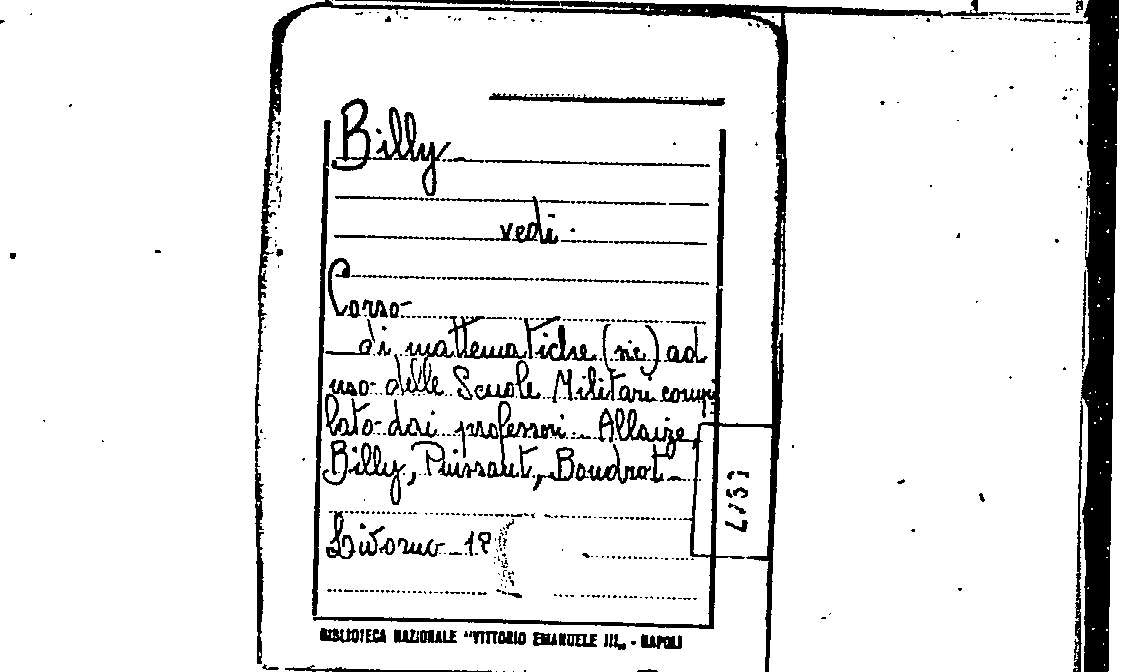 Billy
vedi
Corso
di mattematiche (sic) ad
uso delle Scuole Militari compi
lato dai professori Allaize,
Billy, Puissant, Boudrot
Livorno 18
BIBLIOTECA NAZIONALE "VITTORIO EMANUELE III„ - NAPOLI